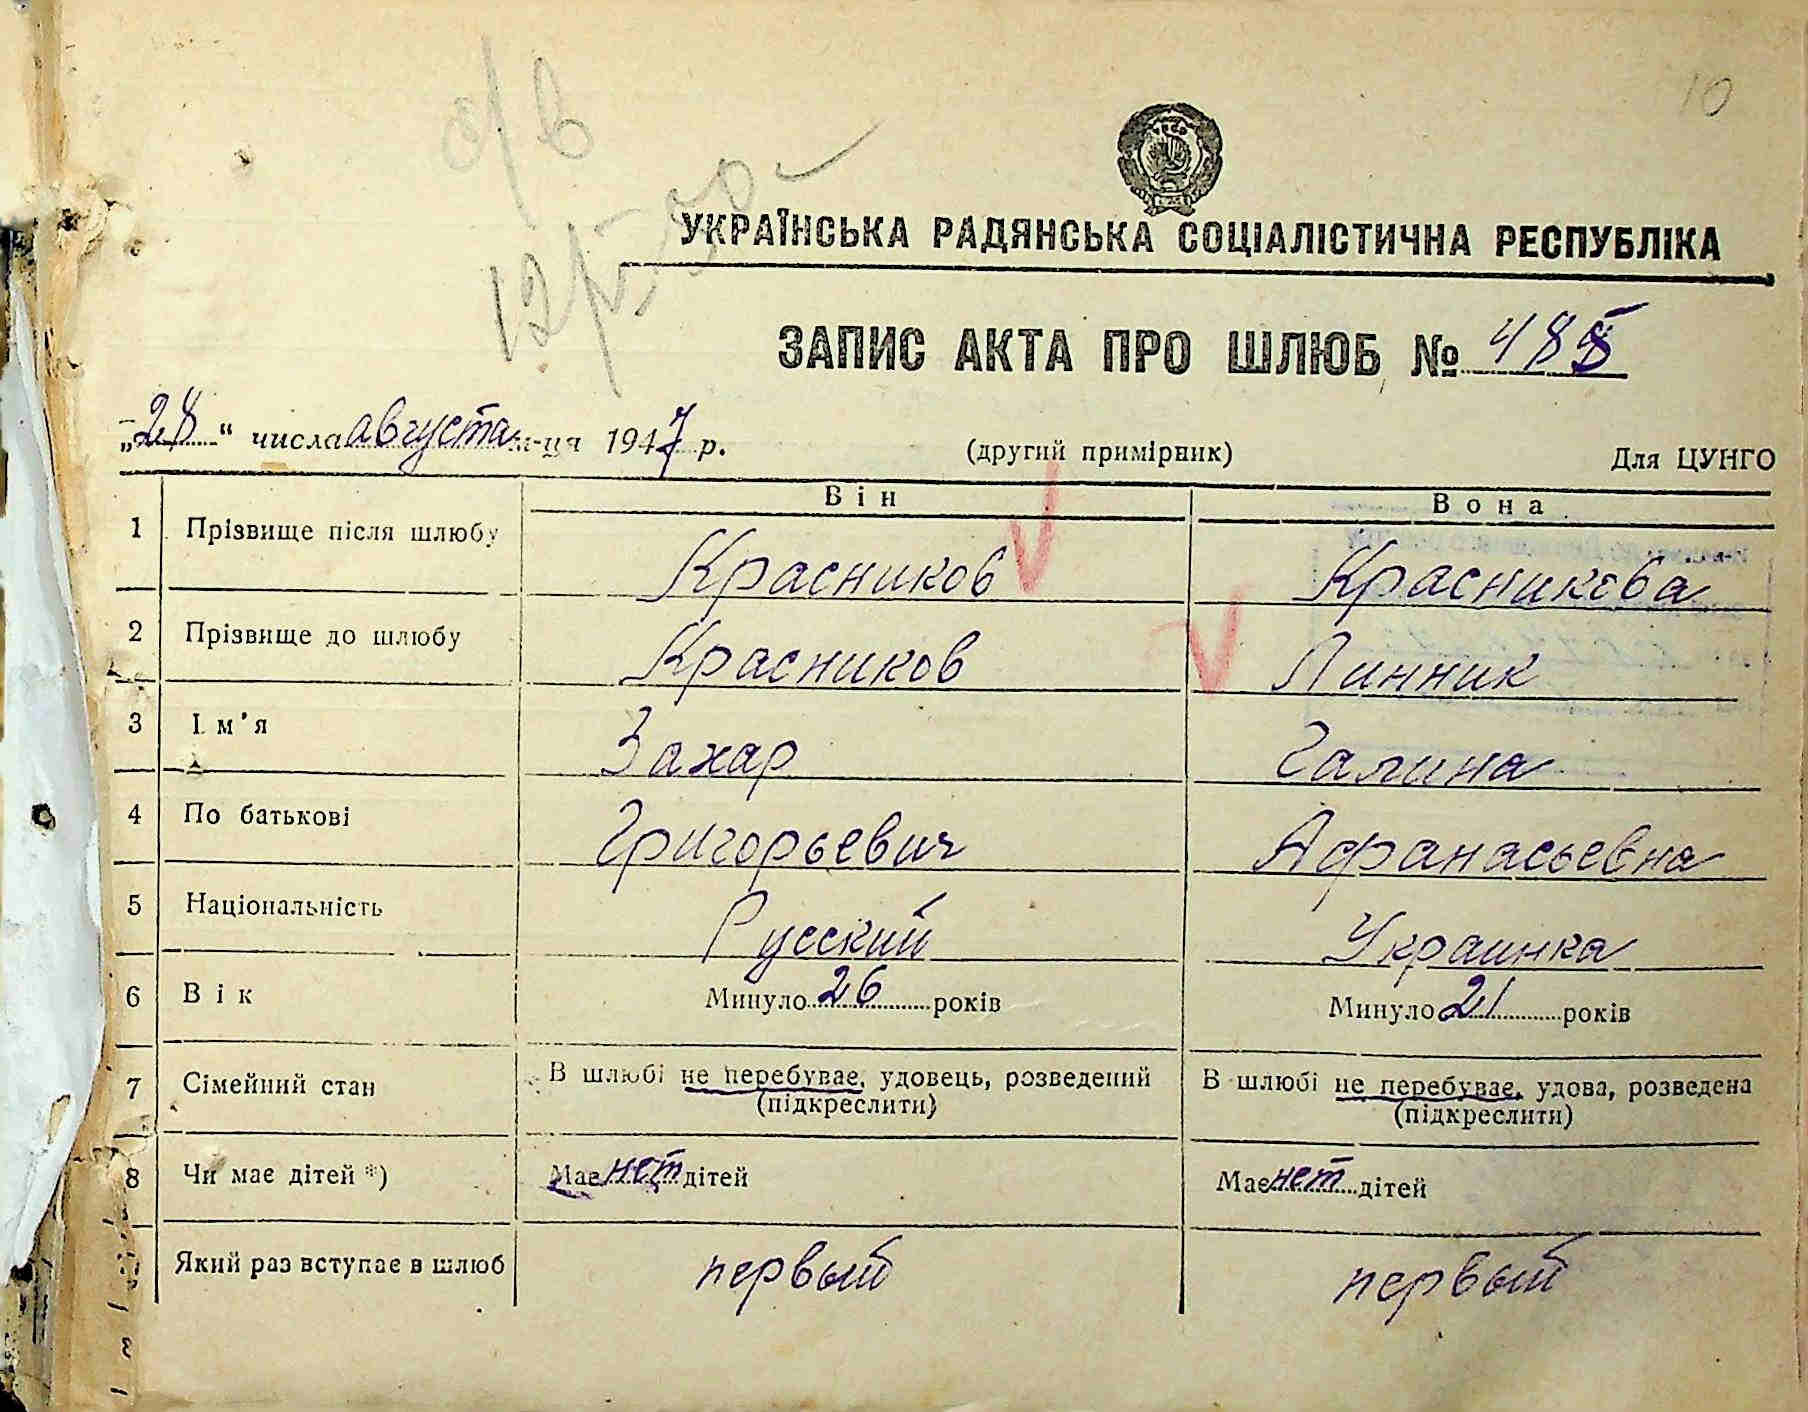 10
о/в
12 р.
УКРАЇНСЬКА РАДЯНСЬКА СОЦІАЛІСТИЧНА РЕСПУБЛІКА
ЗАПИС АКТА ПРО ШЛЮБ №
„28" числа августа м-ця 1947 р. (другий примірник) Для ЦУНГО
Він Вона
1 Прізвище після шлюбу Красников Красникова
2 Прізвище до шлюбу Красников Линник
3 Ім'я Захар Галина
4 По батькові Григорьевич Афанасьевна
5 Національність Русский Украинка
6 Вік Минуло 26 років Минуло 21 років
7 Сімейний стан В шлюбі не перебуває, удовець, розведений В шлюбі не перебуває, удова, розведена
(підкреслити) (підкреслити)
8 Чи має дітей *) Має нет дітей Має нет дітей
Який раз вступає в шлюб первый первый